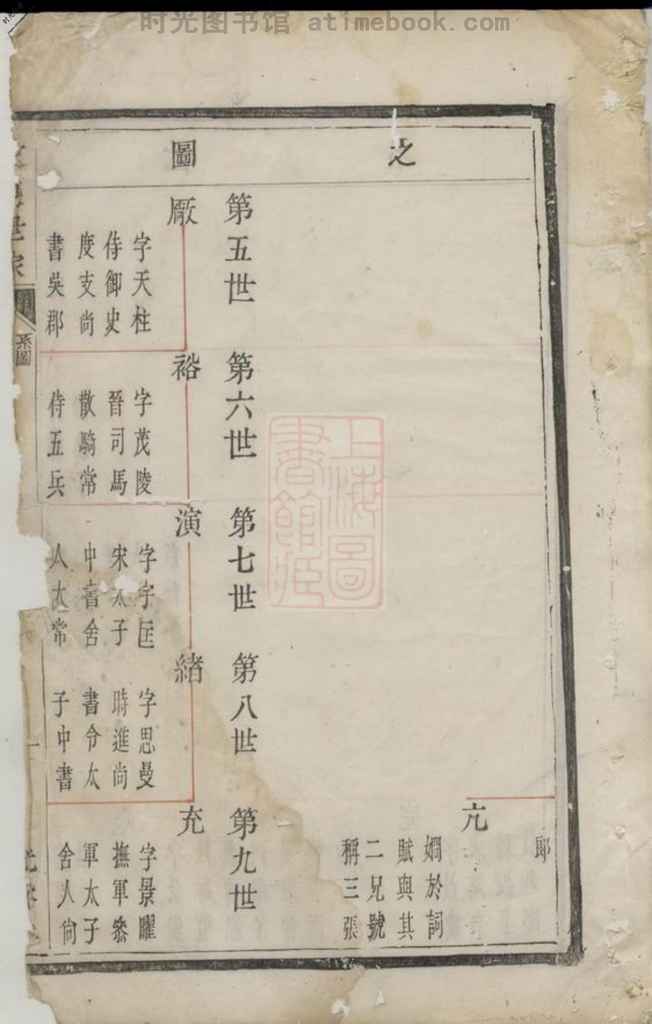 时光图书馆 atimebook.com
之
圖
郎
亢
嫺於詞
賦與其
二兄號
稱三張
第五世
厰
字天柱
侍御史
度支尚
書吳郡
第六世
裕
字茂陵
晉司馬
散騎常
侍五兵
第七世
演
字宇匡
宋太子
中書舍
人太常
第八世
緒
字思曼
時進尚
書令太
子中書
第九世
充
字景曜
撫軍叅
軍太子
舍人尙
世家
系圖
上海圖
書館藏